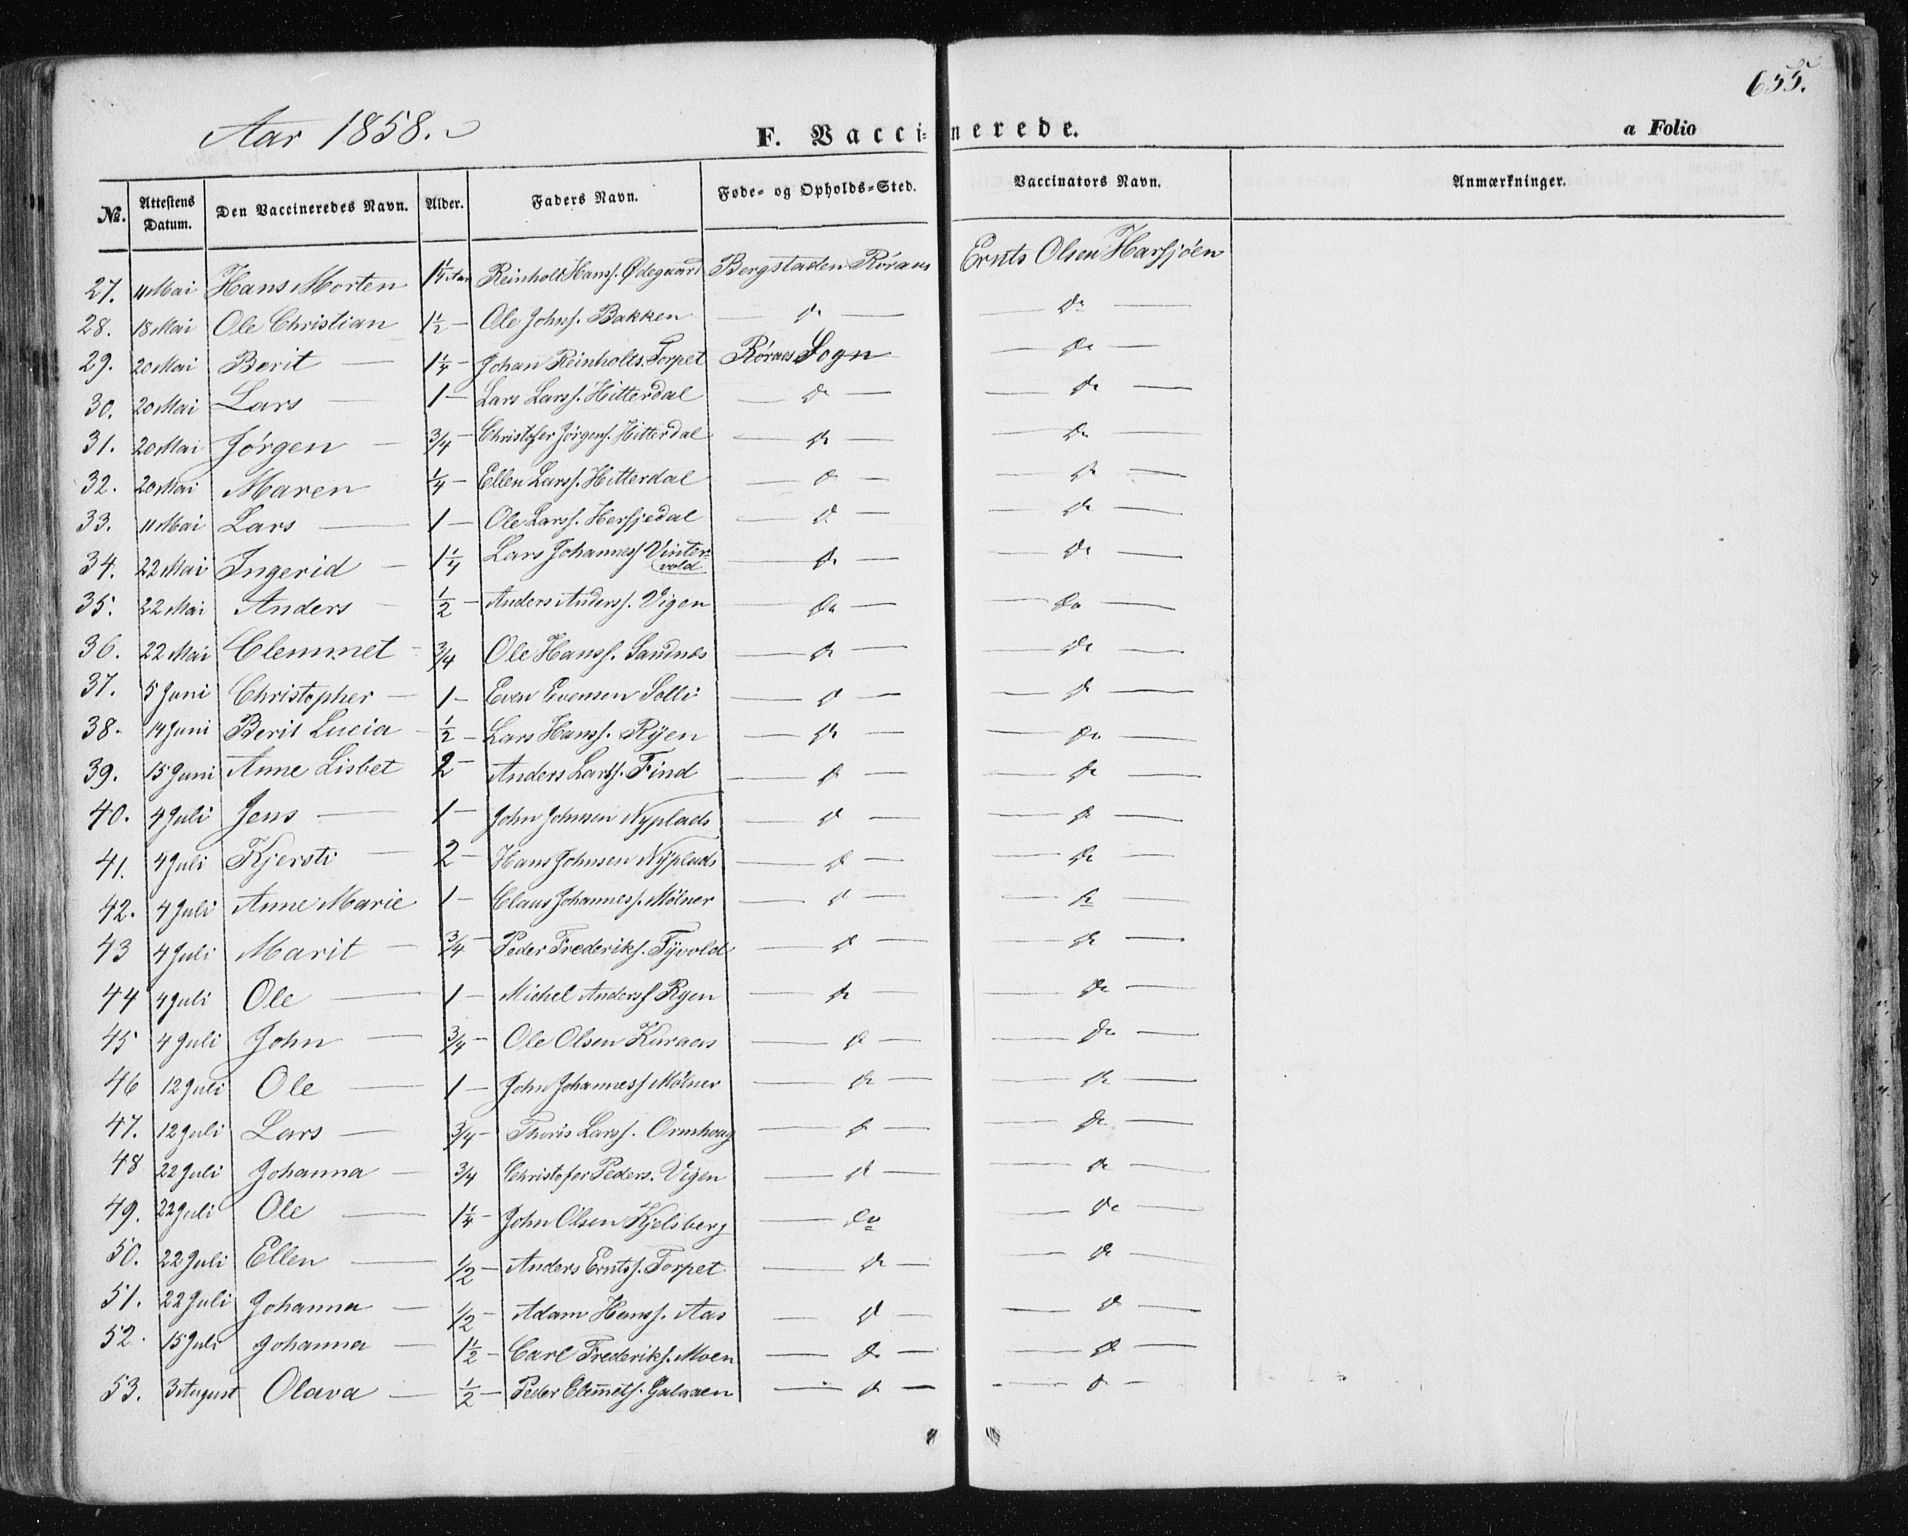 655.
Aar 1858.
F. Vaccinerede.
a Folio
№. Attestens Datum. Den Vaccineredes Navn. Alder. Faders Navn. Føde- og Opholds-Sted. Vaccinators Navn. Anmærkninger.
27. 11 Mai Hans Morten 1 1/4 Aar Reinholt Hans. Ødegaard Bergstaden Røraas Ernts Olsen Harsjøen
28. 18 Mai Ole Christian 1 1/2 — Ole Johns. Bakken — Do — — Do —
29. 20 Mai Berit — 1 1/4 — Johan Reinholts. Torpet Røraas Sogn — Do —
30. 20 Mai Lars — 1 — Lars Larss. Hitterdal — Do — — Do —
31. 20 Mai Jørgen — 3/4 — Christofer Jørgens. Hitterdal — Do — — Do —
32. 20 Mai Maren 1/4 — Ellen Larss. Hitterdal — Do — — Do —
33. 11 Mai Lars — 1 — Ole Larss. Hersjedal — Do — — Do —
34. 22 Mai Ingerid — 1 1/4 Lars Johanness Vintervold — Do — — Do —
35. 22 Mai Anders — 1/2 — Anders Anderss. Vigen — Do — — Do —
36. 22 Mai Clemmet - 3/4 Ole Hanss. Sandnes — Do — — Do —
37. 5 Juni Christopher — 1 — Even Evensen Solli — Do — — Do —
38. 14 Juni Berit Lucia - 1/2 — Lars Hanss. Rÿen — Do — — Do —
39. 15 Juni Anne Lisbet 2 — Anders Larss. Find — Do — — Do —
40. 4 Juli Jens — 1 — John Johnsen Nyplads — Do — — Do —
41. 4 Juli Kjersti — 2 — Hans Johnsen Nÿplads — Do — — Do —
42. 4 Juli Anne Marie 1 — Claus Johanness. Mølner — Do — — Do —
43 4 Juli Marit — 3/4 — Peder Frederiks. Tÿvold — Do — — Do —
44 4 Juli Ole — 1 — Michel Anderss Ryen — Do — — Do —
45 4 Juli John — 3/4 — Ole Olsen Kuraas — Do — — Do —
46 12 Juli Ole — 1 — John Johanness Mølner — Do — — Do —
47. 12 Juli Lars — 3/4 — Thoris Larss. Ormhaug — Do — — Do —
48 22 Juli Johanna — 3/4 Christofer Peders. Vigen — Do — — Do —
49. 22 Juli Ole — 1 1/4 — John Olsen Kjelsberg — Do — — Do —
50. 22 Juli Ellen — 1/2 — Anders Erntss. Torpet — Do — — Do —
51. 22 Juli Johanna — 1/2 — Adam Hanss. Aas — Do — — Do —
52. 15 Juli Johanna — 1 1/2 — Carl Frederiks. Moen — Do — — Do —
53. 3 August Olava — 1/2 — Peder Clem̄ets. Galaaen — Do — — Do —